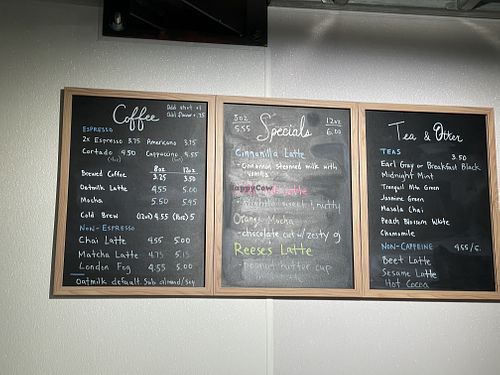 Coffee
Add shot +1
Add flavor +.75
ESPRESSO
2x Espresso 3.75 Americano 3.75
Cortado 4.50 Cappuccino 4.55
8oz 12oz
Brewed Coffee 3.25 3.50
Oatmilk Latte 4.55 5.00
Mocha 5.50 5.95
Cold Brew (12oz) 4.55
NON-ESPRESSO
Chai Latte 4.55 5.00
Matcha Latte 4.75 5.15
London Fog 4.55 5.00
Oatmilk default. Sub almond/soy
8oz 12oz
5.55 6.00
Specials
Cinnanilla Latte
- cinnamon steamed milk w/
vanilla
HappyCow
Latte
- slightly sweet & nutty
Orange Mocha
- chocolate cut w/ zesty
Reese's Latte
- peanut butter cup
Tea & Other
TEAS 3.50
Earl Gray or Breakfast Black
Midnight Mint
Tranquil Mtn Green
Jasmine Green
Masala Chai
Peach Blossom White
Chamomile
NON-CAFFEINE 4.55/5.
Beet Latte
Sesame Latte
Hot Cocoa